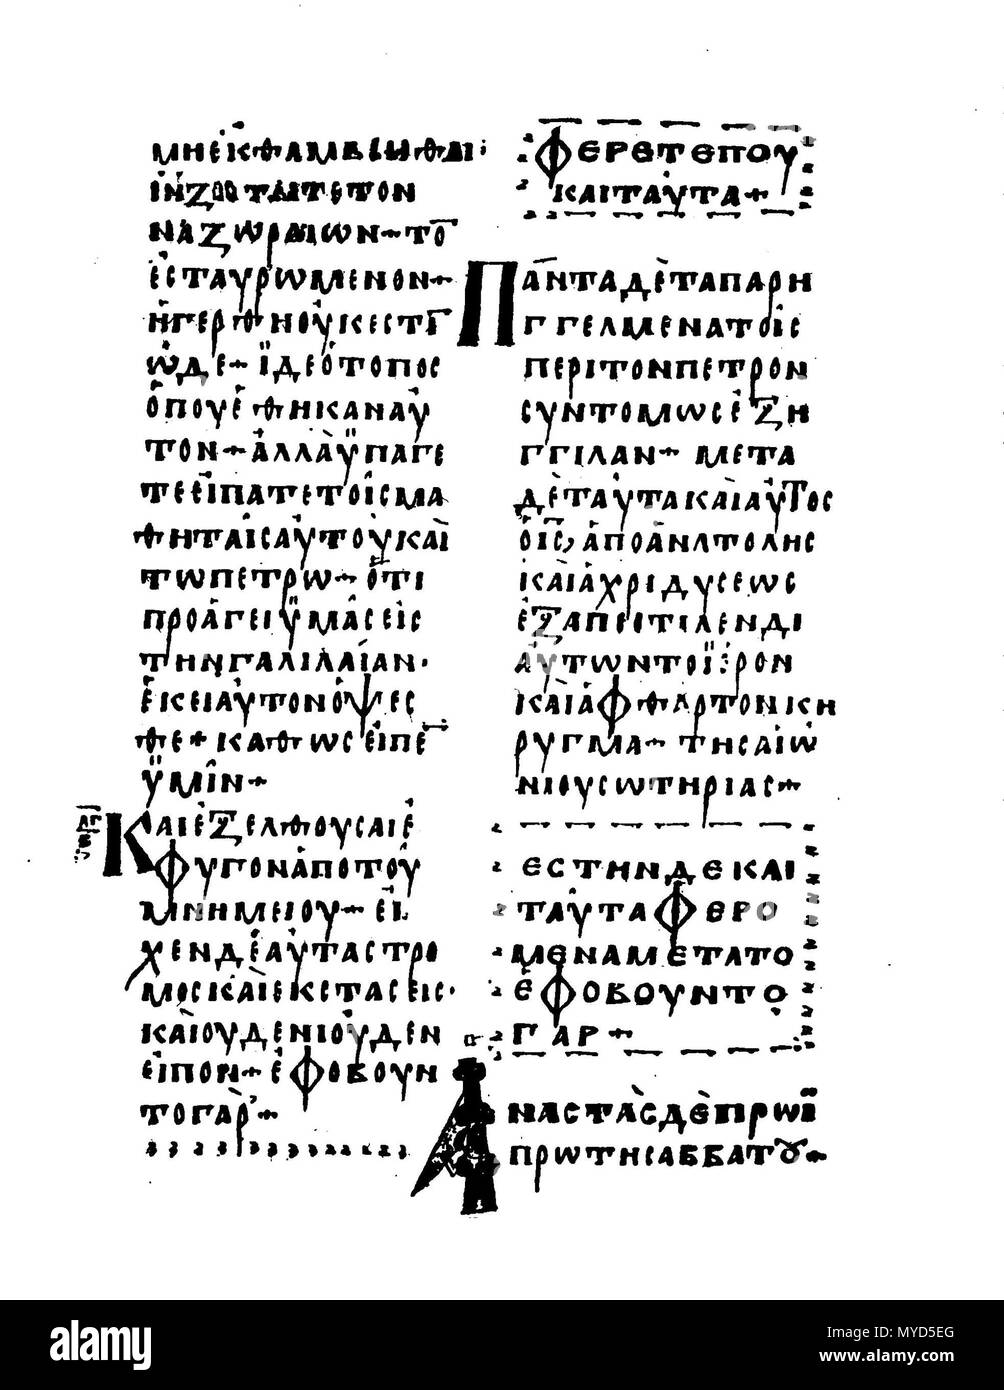 ΜΗΕΚΘΑΜΒΕΙΗΘΑΙ:
ΙΝΖΗΤΑΙΤΕΤΟΝ
ΝΑΖΩΡΑΙΟΝ+ΤΟ̅
ἘΣΤΑΥΡΩΜΕΝΟΝ+
ἨΓΕΡΘΗΟΥΚΕΣΤΙ̅
ὩΔΕ+ΪΔΕὉΤΟΠΟΣ
ὍΠΟΥΕΘΗΚΑΝΑΥ
ΤΟΝ+ἈΛΛᾺΫΠΑΓΕ
ΤΕΕΙΠΑΤΕΤΟΙΣΜΑ
ΘΗΤΑΙΣΑΥΤΟΥΚΑΙ
ΤΩΠΕΤΡΩ+ὍΤΙ
ΠΡΟΑΓΕΙΫΜΑΣΕΙΣ
ΤΗΝΓΑΛΙΛΑΙΑΝ·
ἘΚΕΙΑΥΤΟΝΟΨΕΣ
ΘΕ+ΚΑΘΩΣΕΙΠΕ̅
ΫΜΙΝ+
ΚΑΙΕΞΕΛΘΟΥΣΑΙΕ
ΦΥΓΟΝΑΠΟΤΟΥ
ΜΝΗΜΕΙΟΥ+ΕΙ
ΧΕΝΔΕΑΥΤΑΣΤΡΟ
ΜΟΣΚΑΙΕΚΣΤΑΣΕΙΣ·
ΚΑΙΟΥΔΕΝΙΟΥΔΕΝ
ΕΙΠΟΝ+ΕΦΟΒΟΥΝ
ΤΟΓΑΡ+
ΦΕΡΕΤΕΠΟΥ
ΚΑΙΤΑΥΤΑ+
ΠΑΝΤΑΔΕΤΑΠΑΡΗ
ΓΓΕΛΜΕΝΑΤΟΙΣ
ΠΕΡΙΤΟΝΠΕΤΡΟΝ
ΣΥΝΤΟΜΩΣΕΞΗ
ΓΓΙΛΑΝ+ΜΕΤΑ
ΔΕΤΑΥΤΑΚΑΙΑΥΤΟΣ
ὉΙ̅Σ̅,ΑΠΟΑΝΑΤΟΛΗΣ
ΚΑΙΑΧΡΙΔΥΣΕΩΣ
ΕΞΑΠΕΣΤΙΛΕΝΔΙ
ΑΥΤΩΝΤΟΪΕΡΟΝ
ΚΑΙΑΦΘΑΡΤΟΝΚΗ
ΡΥΓΜΑ+ΤΗΣΑΙΩ
ΝΙΟΥΣΩΤΗΡΙΑΣ+
ΕΣΤΗΝΔΕΚΑΙ
ΤΑΥΤΑΦΕΡΟ
ΜΕΝΑΜΕΤΑΤΟ
ΕΦΟΒΟΥΝΤΟ
ΓΑΡ+
ΑΝΑΣΤΑΣΔΕΠΡΩΪ
ΠΡΩΤΗΣΑΒΒΑΤΟΥ+
alamy
alamy
Image ID: MYD5EG
www.alamy.com